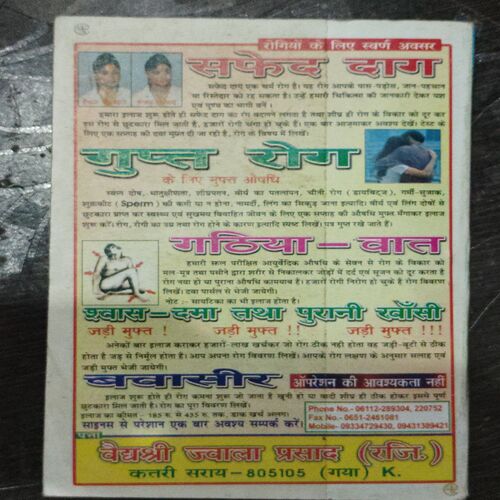 रोगियों के लिए स्वर्ण अवसर
सफेद दाग
सफेद दाग एक चर्म रोग है। यह रोग आपके पास-पड़ोस, जान-पहचान
या रिश्तेदार को रह सकता है। उन्हें हमारी चिकित्सा की जानकारी देकर यश
एवं पुण्य का भागी बनें।
हमारा इलाज शुरू होते ही सफेद दाग का रंग बदलने लगता है तथा शीघ्र ही रोग के विकार को दूर कर
इस रोग से छुटकारा मिल जाती है, हजारों रोगी चंगा हो चुके हैं। एक बार आजमाकर अवश्य देखें। टेस्ट के
लिए एक सप्ताह की दवा मुफ्त दी जा रही है, रोग के विषय में लिखें।
गुप्त रोग
के लिए मुफ्त औषधि
स्वप्न दोष, धातुक्षीणता, शीघ्रपतन, वीर्य का पतलापन, चीनी रोग (डायबिट्ज), गर्मी-सुजाक,
शुक्रकीट (Sperm) की कमी या न होना, नामर्दी, लिंग का सिकुड़ जाना इत्यादि। वीर्य एवं लिंग दोषों से
छुटकारा प्राप्त कर स्वस्थ्य एवं सुखमय विवाहित जीवन के लिए एक सप्ताह की औषधि मुफ्त मँगाकर इलाज
शुरू करें। रोग, रोगी का उम्र तथा रोग होने के कारण इत्यादि स्पष्ट लिखें। पत्र गुप्त रखे जाते हैं।
गठिया – वात
हमारी सफल परीक्षित आयुर्वेदिक औषधि के सेवन से रोग के विकार को
मल-मूत्र तथा पसीने द्वारा शरीर से निकालकर जोड़ों में दर्द एवं सूजन को दूर करता है
रोग नया हो या पुराना औषधि कामयाब है। हजारों रोगी निरोग हो चुके है रोग विवरण
लिखें। दवा पार्सल से भेजी जायेगी।
नोट :- सायटिका का भी इलाज होता है।
श्वास – दमा तथा पुरानी खाँसी
जड़ी मुफ्त ! जड़ी मुफ्त !! जड़ी मुफ्त !!!
अनेकों बार इलाज कराकर हजारों-लाख खर्चकर जो रोग ठीक नही होता वह जड़ी-बूटी से ठीक
होता है जड़ से निर्मूल होता है। आप अपना रोग विवरण लिखें। आपके रोग लक्षण के अनुसार सलाह एवं
जड़ी मुफ्त भेजी जायेगी।
बवासीर
ऑपरेशन की आवश्यकता नहीं
इलाज शुरू होते ही रोग कमना शुरू जो जाता है खूनी हो या वादी शीघ्र ही ठीक होकर इससे पूर्ण
छुटकारा मिल जाती है। रोग का पूरा विवरण लिखें।
इलाज का कीमत - 185 रु. से 435 रु. तक, डाक खर्च अलग।
साइनस से परेशान एक बार अवश्य सम्पर्क करें।
Phone No.- 06112-289304, 220752
Fax No.- 0651-2461081
Mobile- 09334729430, 09431389421
पत्ता
वैद्यश्री ज्वाला प्रसाद (रजि.)
कतरी सराय – 805105 (गया) K.